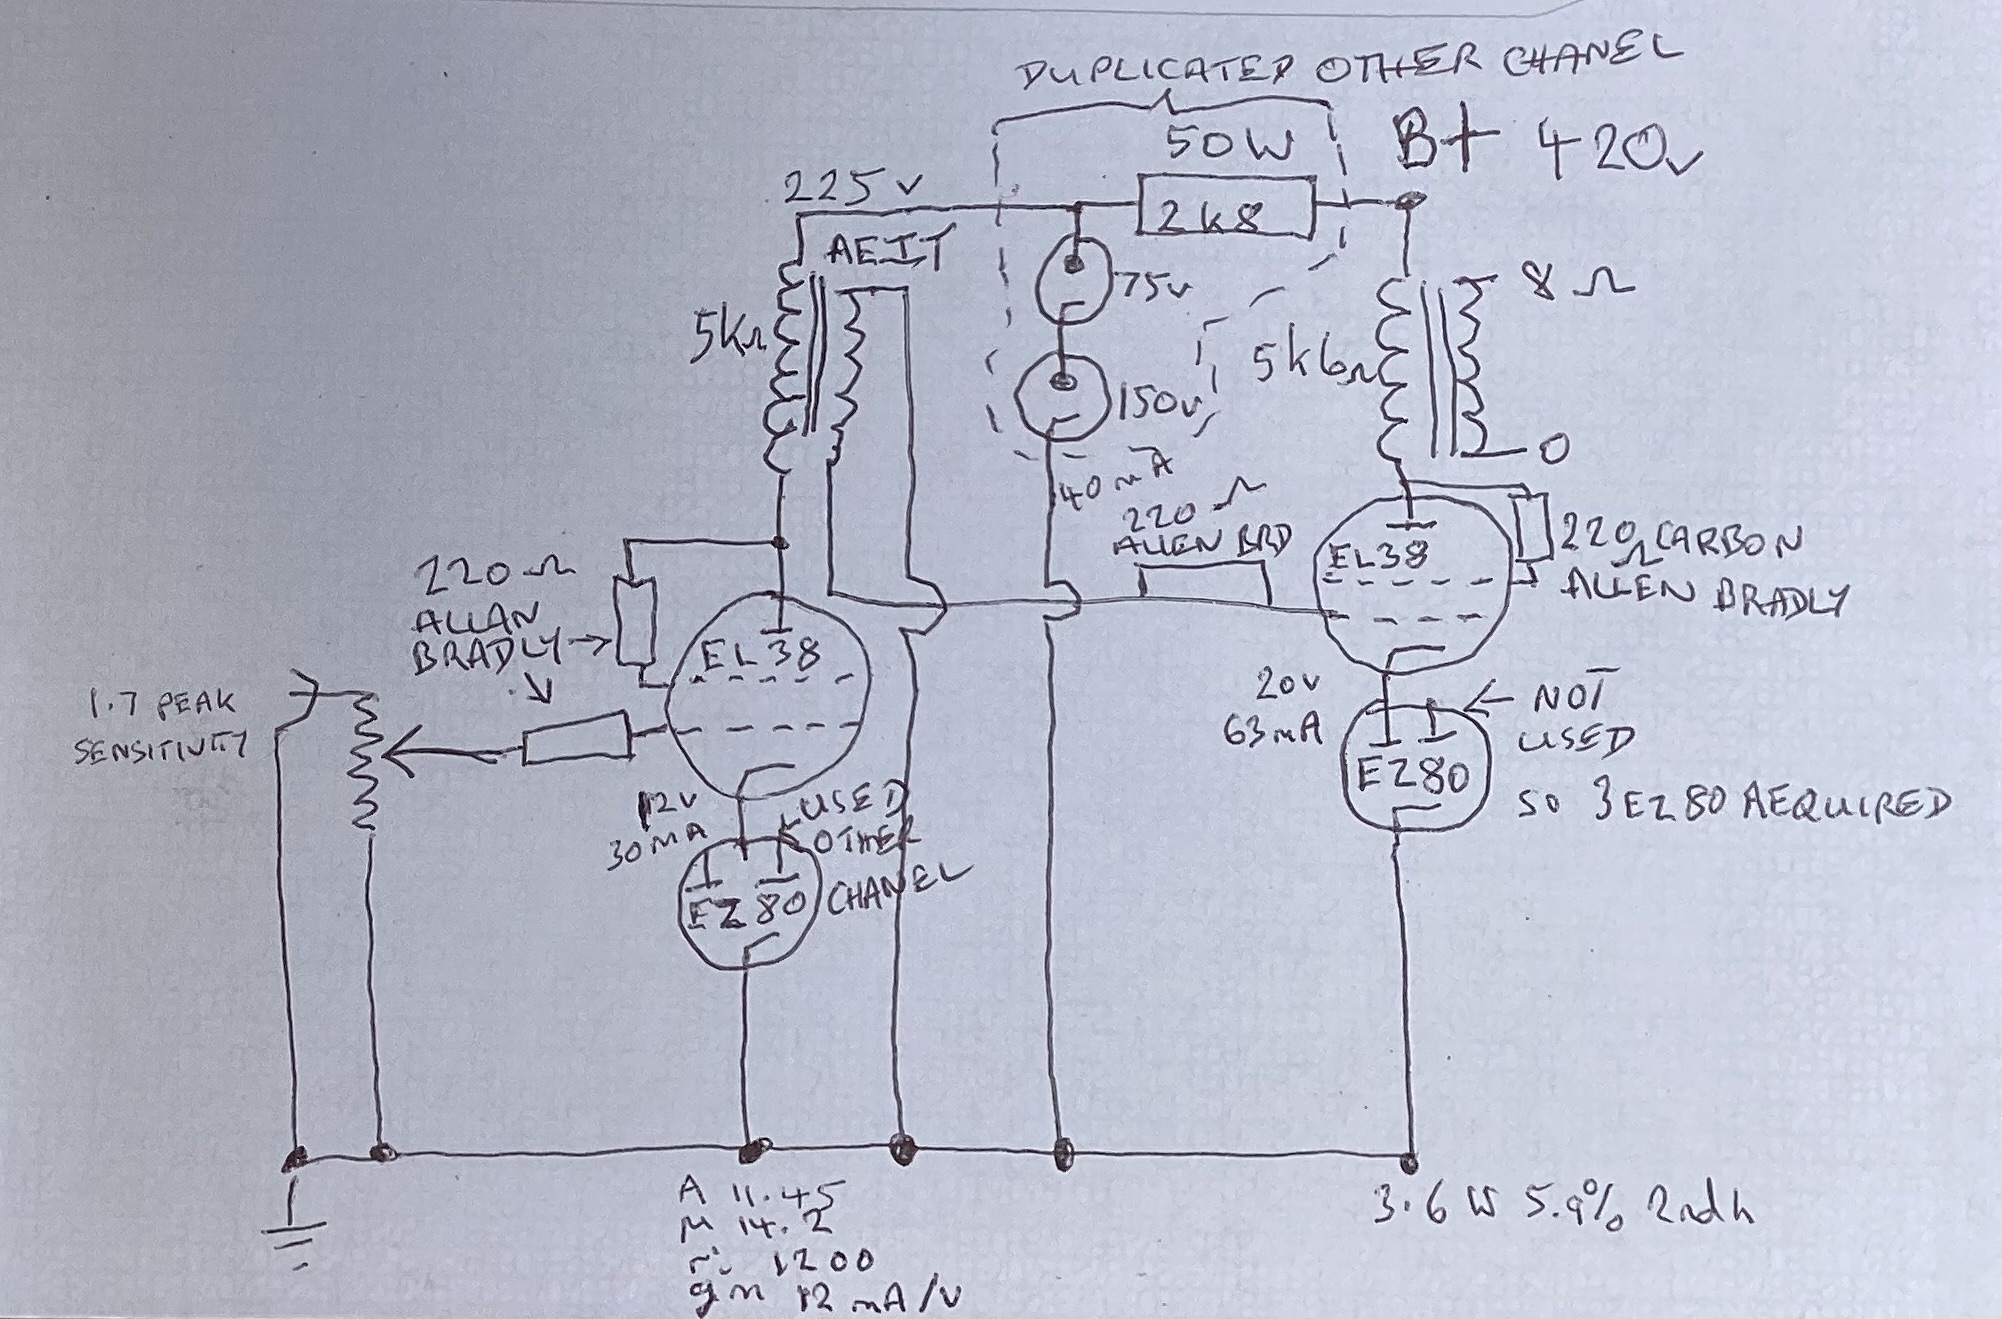 DUPLICATED OTHER CHANEL
50W
B+ 420v
225v
2k8
AEIT
75v
8Ω
5kΩ
5k6Ω
150v
0
40mA
220Ω
ALLEN BRD
EL38
220Ω CARBON
ALLEN BRADLY
220Ω
ALLAN
BRADLY
EL38
1.7 PEAK
SENSITIVITY
20v
63mA
NOT
USED
EZ80
SO 3 EZ80 AEQUIRED
12v
30MA
USED
OTHER
CHANEL
EZ80
A 11.45
μ 14.2
ri 1200
gm 12mA/V
3.6W 5.9% 2ndh